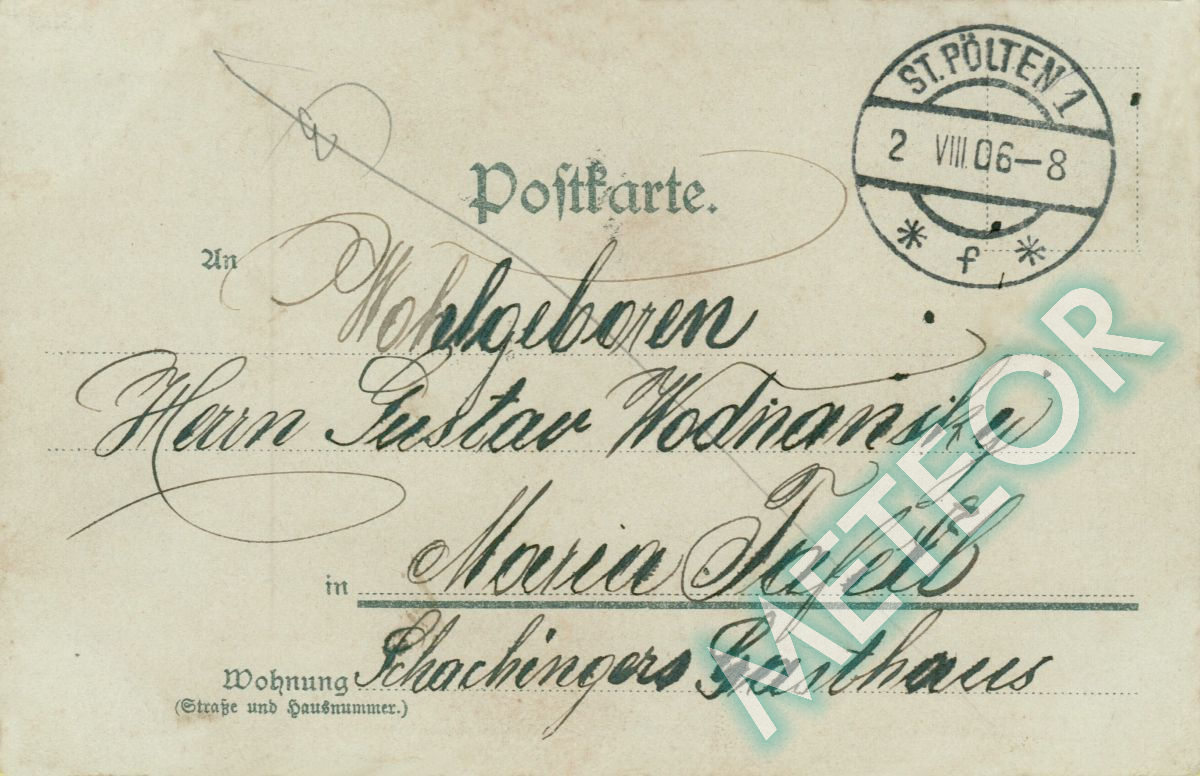 ST. PÖLTEN 1
2 VIII. 06-8
* f *
Postkarte.
An
Wohlgeboren
Herrn Gustav Wodnansky
in Maria Taferl
Schachingers Gasthaus
Wohnung
(Straße und Hausnummer.)
METEOR